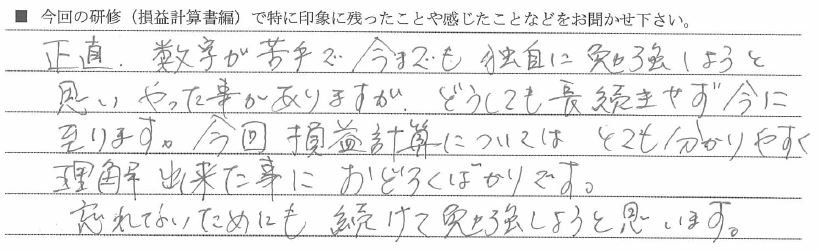 ■ 今回の研修（損益計算書編）で特に印象に残ったことや感じたことなどをお聞かせ下さい。
正直、数字が苦手で今までも独自に勉強しようと
思いやった事がありますが、どうしても長続きせず今に
至ります。今回損益計算についてはとても分かりやすく
理解出来た事におどろくばかりです。
忘れてないためにも続けて勉強しようと思います。